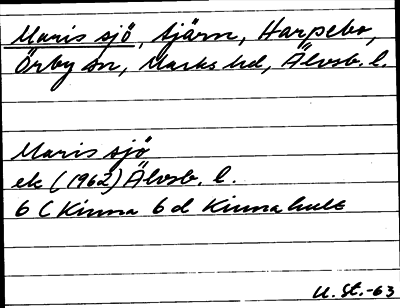 Maris sjö, tjärn, Harpebo,
Örby sn, Marks hd, Älvsb. l.
Maris sjö
ek (1962) Älvsb. l.
6 C Kinna 6 d Kinnahult
U. St. -63